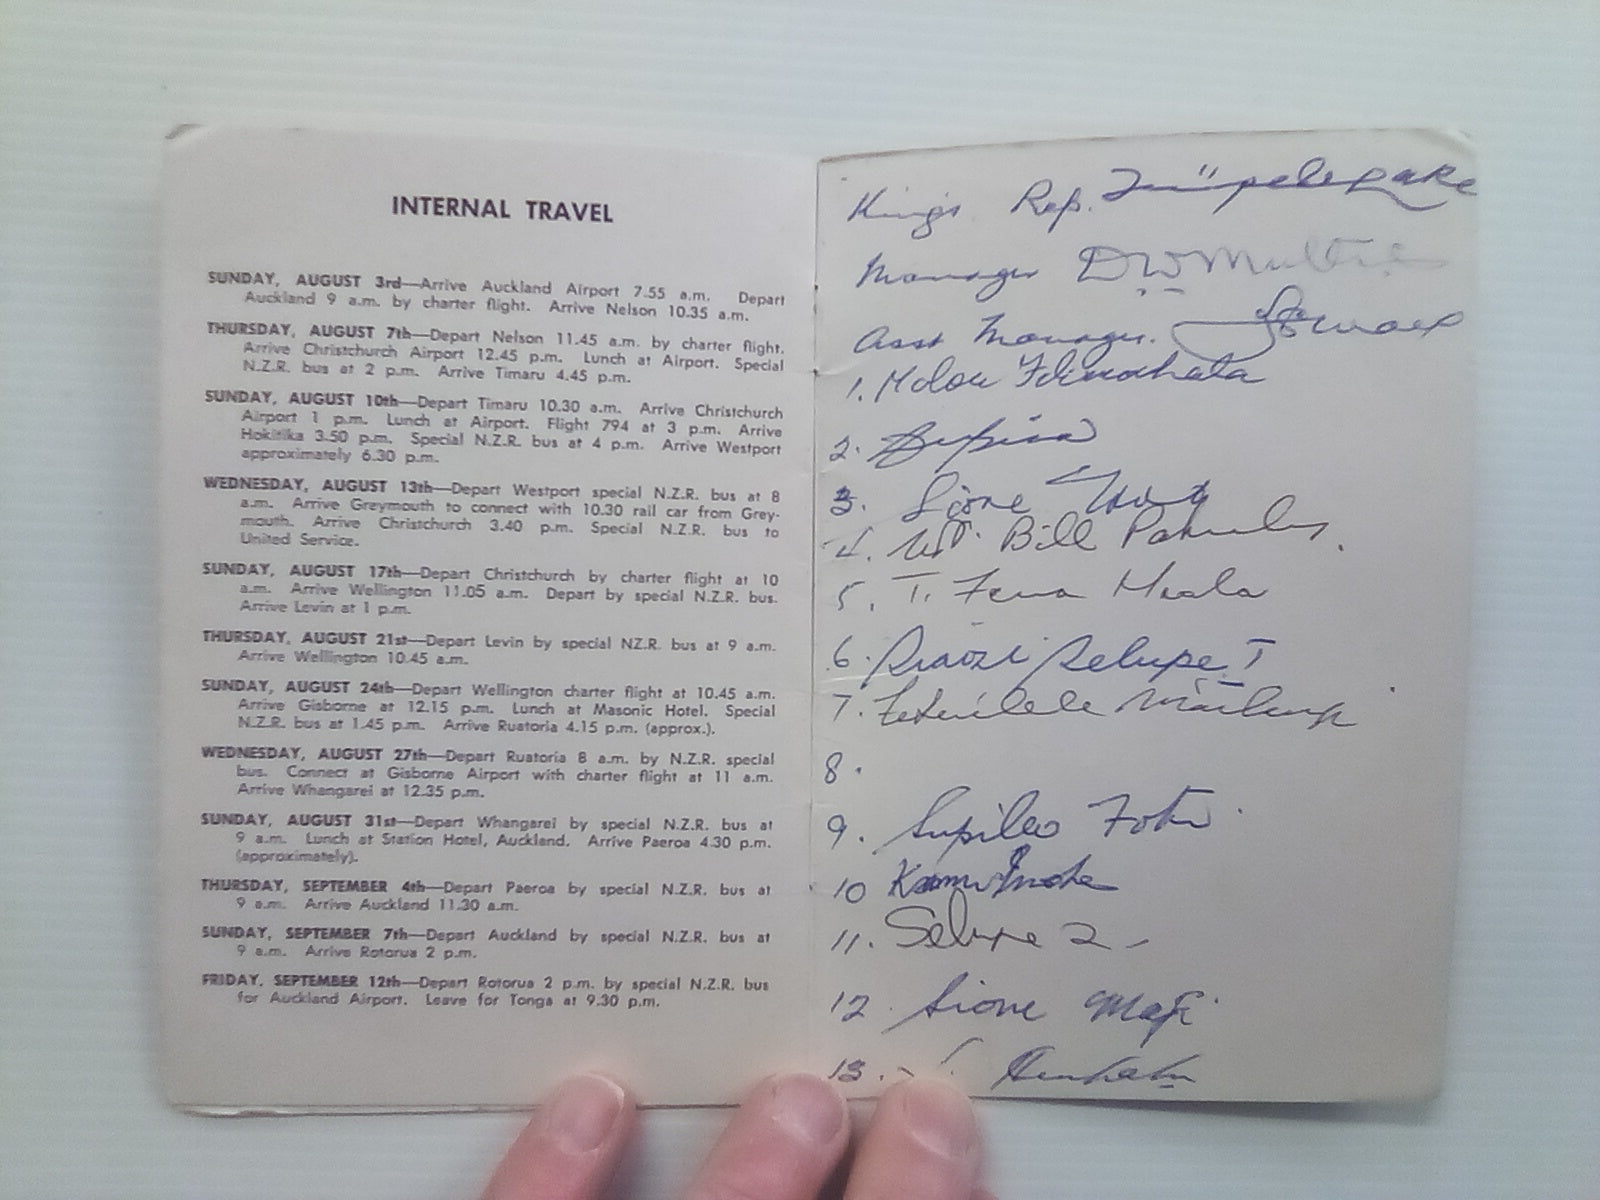 INTERNAL TRAVEL
SUNDAY, AUGUST 3rd—Arrive Auckland Airport 7.55 a.m. Depart
Auckland 9 a.m. by charter flight. Arrive Nelson 10.35 a.m.
THURSDAY, AUGUST 7th—Depart Nelson 11.45 a.m. by charter flight.
Arrive Christchurch Airport 12.45 p.m. Lunch at Airport. Special
N.Z.R. bus at 2 p.m. Arrive Timaru 4.45 p.m.
SUNDAY, AUGUST 10th—Depart Timaru 10.30 a.m. Arrive Christchurch
Airport 1 p.m. Lunch at Airport. Flight 794 at 3 p.m. Arrive
Hokitika 3.50 p.m. Special N.Z.R. bus at 4 p.m. Arrive Westport
approximately 6.30 p.m.
WEDNESDAY, AUGUST 13th—Depart Westport special N.Z.R. bus at 8
a.m. Arrive Greymouth to connect with 10.30 rail car from Grey-
mouth. Arrive Christchurch 3.40 p.m. Special N.Z.R. bus to
United Service.
SUNDAY, AUGUST 17th—Depart Christchurch by charter flight at 10
a.m. Arrive Wellington 11.05 a.m. Depart by special N.Z.R. bus.
Arrive Levin at 1 p.m.
THURSDAY, AUGUST 21st—Depart Levin by special NZ.R. bus at 9 a.m.
Arrive Wellington 10.45 a.m.
SUNDAY, AUGUST 24th—Depart Wellington charter flight at 10.45 a.m.
Arrive Gisborne at 12.15 p.m. Lunch at Masonic Hotel. Special
N.Z.R. bus at 1.45 p.m. Arrive Ruatoria 4.15 p.m. (approx.).
WEDNESDAY, AUGUST 27th—Depart Ruatoria 8 a.m. by N.Z.R. special
bus. Connect at Gisborne Airport with charter flight at 11 a.m.
Arrive Whangarei at 12.35 p.m.
SUNDAY, AUGUST 31st—Depart Whangarei by special N.Z.R. bus at
9 a.m. Lunch at Station Hotel, Auckland. Arrive Paeroa 4.30 p.m.
(approximately).
THURSDAY, SEPTEMBER 4th—Depart Paeroa by special N.Z.R. bus at
9 a.m. Arrive Auckland 11.30 a.m.
SUNDAY, SEPTEMBER 7th—Depart Auckland by special N.Z.R. bus at
9 a.m. Arrive Rotorua 2 p.m.
FRIDAY, SEPTEMBER 12th—Depart Rotorua 2 p.m. by special N.Z.R. bus
for Auckland Airport. Leave for Tonga at 9.30 p.m.
King's Rep.
Manager
Asst Manager.
1.
2.
3. Sione
4. Bill
5. T.
6.
7.
8.
9.
10
11. 2
12 Sione Mafi
13.